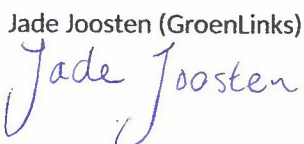 Jade Joosten (GroenLinks)
Jade Joosten